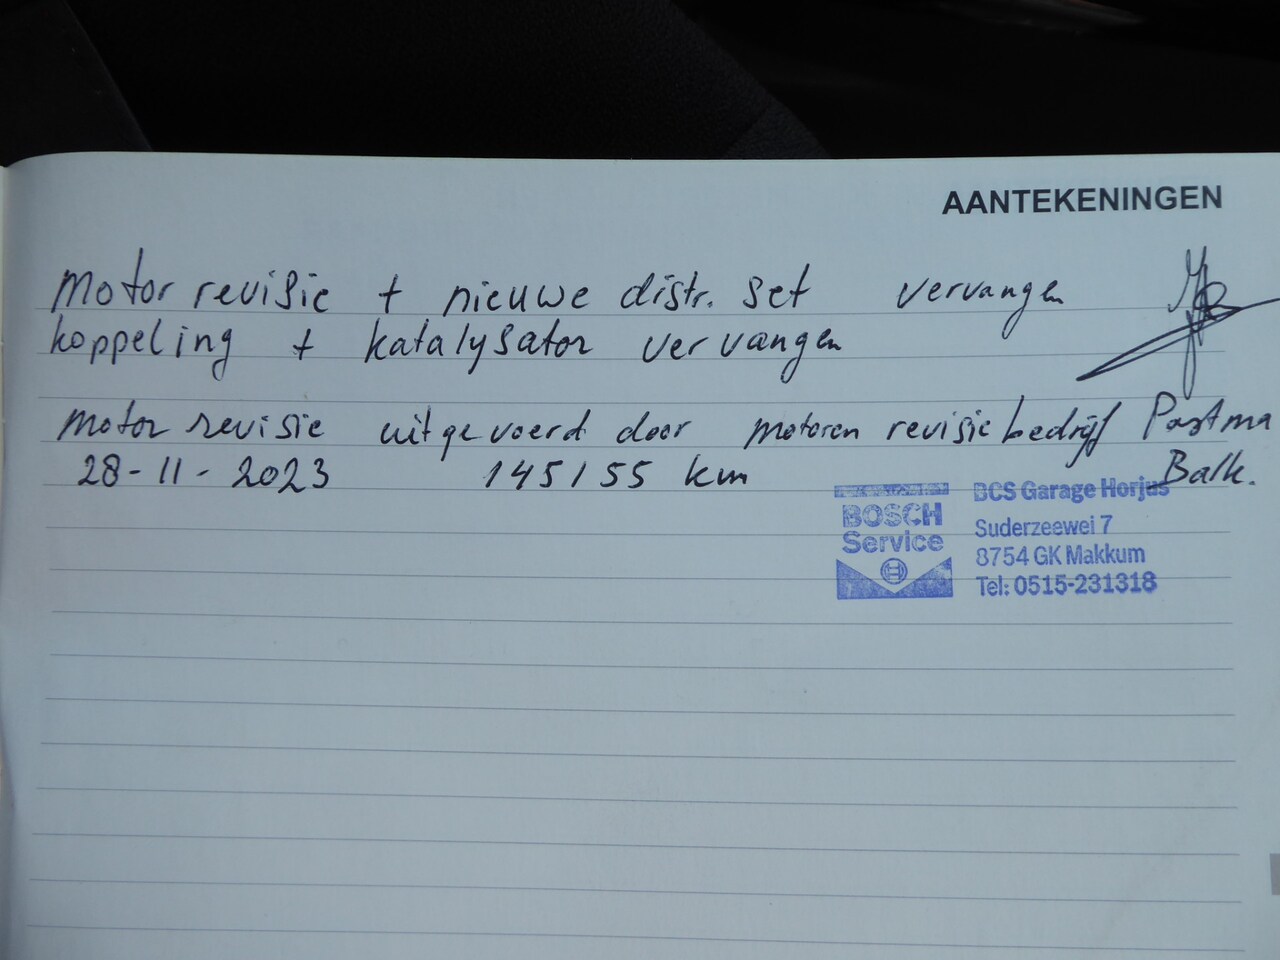 AANTEKENINGEN
Motor revisie + nieuwe distr. set vervangen
koppeling + katalysator vervangen
Motor revisie uitgevoerd door motoren revisie bedrijf Postma
28-11-2023 145155 km Balk.
BOSCH
Service
BCS Garage Horjus
Suderzeewei 7
8754 GK Makkum
Tel: 0515-231318